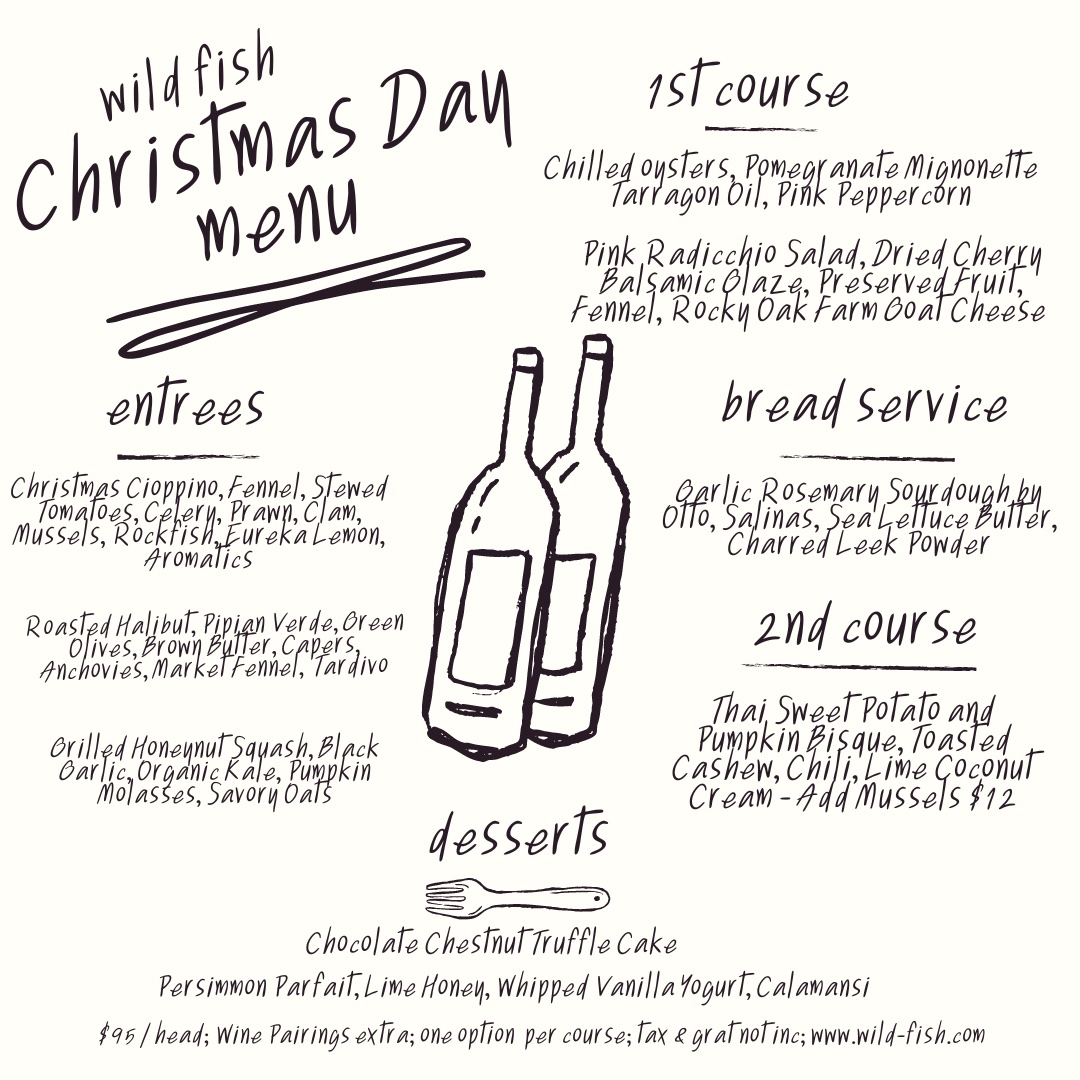 wild fish
Christmas Day
menu
1st course
Chilled oysters, Pomegranate Mignonette
Tarragon Oil, Pink Peppercorn
Pink Radicchio Salad, Dried Cherry
Balsamic Glaze, Preserved Fruit,
Fennel, Rocky Oak Farm Goat Cheese
bread service
Garlic Rosemary Sourdough by
Otto, Salinas, Sea Lettuce Butter,
Charred Leek Powder
2nd course
Thai Sweet Potato and
Pumpkin Bisque, Toasted
Cashew, Chili, Lime Coconut
Cream - Add Mussels $12
entrees
Christmas Cioppino, Fennel, Stewed
Tomatoes, Celery, Prawn, Clam,
Mussels, Rockfish, Eureka Lemon,
Aromatics
Roasted Halibut, Pipian Verde, Green
Olives, Brown Butter, Capers,
Anchovies, Market Fennel, Tardivo
Grilled Honeynut Squash, Black
Garlic, Organic Kale, Pumpkin
Molasses, Savory Oats
desserts
Chocolate Chestnut Truffle Cake
Persimmon Parfait, Lime Honey, Whipped Vanilla Yogurt, Calamansi
$95 / head; Wine Pairings extra; one option per course; tax & grat not inc; www.wild-fish.com